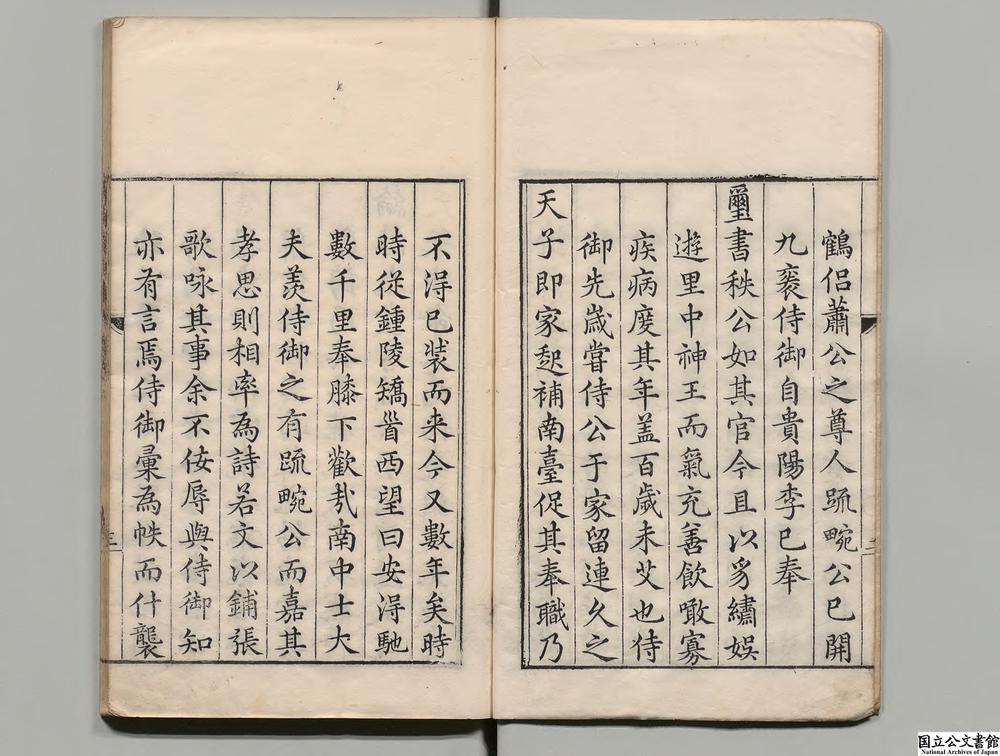 鶴侶蕭公之尊人䟽畹公已開
九袠侍御自貴陽李已奉
璽書秩公如其官今且以豸繡娛
遊里中神王而氣充善飲噉寡
疾病度其年盖百歲未艾也侍
御先歲嘗侍公于家留連久之
天子即家起補南臺促其奉職乃
不淂已裝而来今又數年矣時
時從鍾陵矯首西望曰安淂馳
數千里奉膝下歡㢤南中士大
夫羨侍御之有䟽畹公而嘉其
孝思則相率為詩若文以鋪張
歌咏其事余不佞辱與侍御知
亦有言焉侍御彙為帙而什襲
三
三
国立公文書館
National Archives of Japan